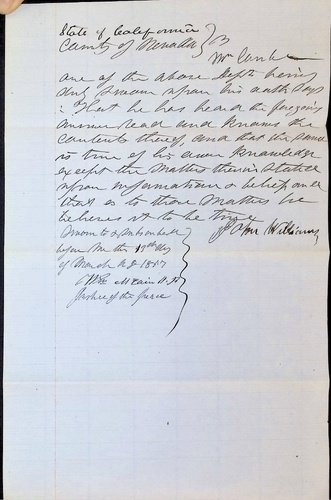 State of California
County of Nevada } SS
Wm
one of the above Defts being
duly sworn upon his oath says
: That he has heard the foregoing
answer read and knows the
contents thereof, and that the same
is true of his own knowledge
except the matters therein stated
upon information & belief and
that as to those matters he
believes it to be true
John Williams
Sworn to & subscribed
before me this 19th day
of March A D 1857
Justice of the Peace